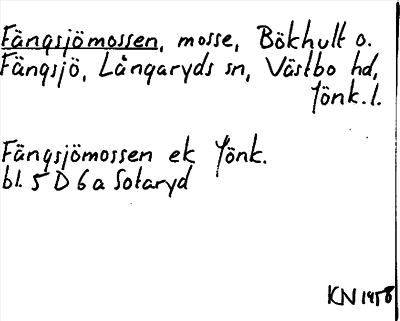 Fängsjömossen, mosse, Bökhult o.
Fängsjö, Långaryds sn, Västbo hd,
Jönk. l.
Fängsjömossen ek Jönk.
bl. 5 D 6 a Sotaryd
KN 1958